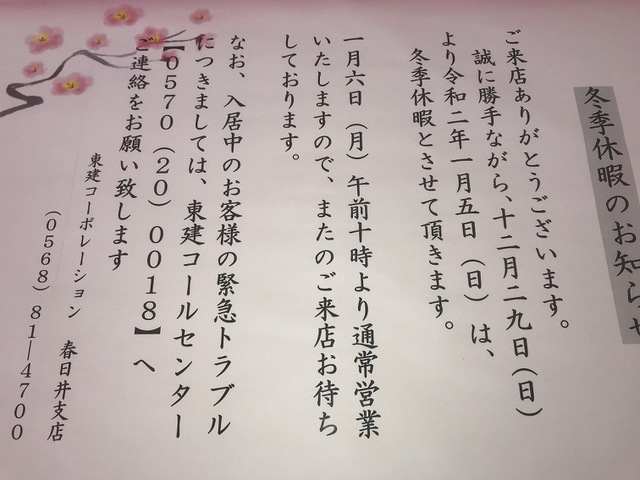 冬季休暇のお知らせ
ご来店ありがとうございます。
誠に勝手ながら、十二月二九日（日）
より令和二年一月五日（日）は、
冬季休暇とさせて頂きます。
一月六日（月）午前十時より通常営業
いたしますので、またのご来店お待ち
しております。
なお、入居中のお客様の緊急トラブル
につきましては、東建コールセンター
【0570（20）0018】へ
ご連絡をお願い致します
東建コーポレーション　春日井支店
（0568）81―4700